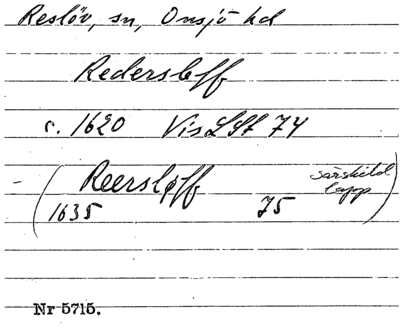 Reslöv, sn, Onsjö hd
Redersleff
c. 1620 Vis LSt 74
- (Reersløff särskild
lapp)
1635 75
Nr 5715.